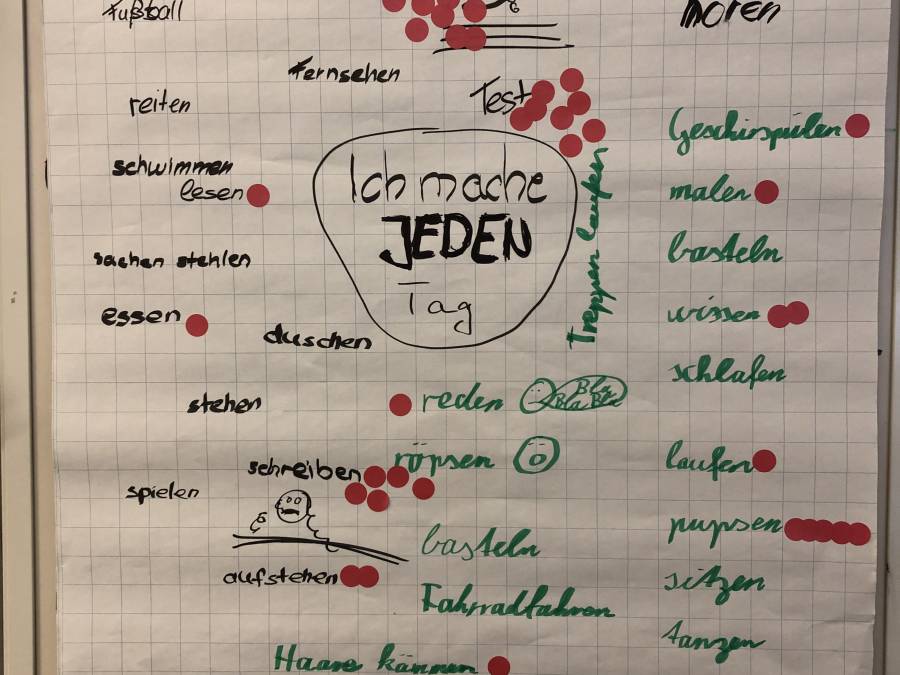 Fußball
hören
Fernsehen
reiten
Test
Geschirspülen
schwimmen
lesen
Ich mache
JEDEN
Tag
Treppen laufen
malen
sachen stehlen
basteln
essen
duschen
wissen
schlafen
stehen
reden
Bla
Bla Bla
schreiben
röpsen
laufen
spielen
pupsen
basteln
aufstehen
Fahrradfahren
sitzen
tanzen
Haare kämmen